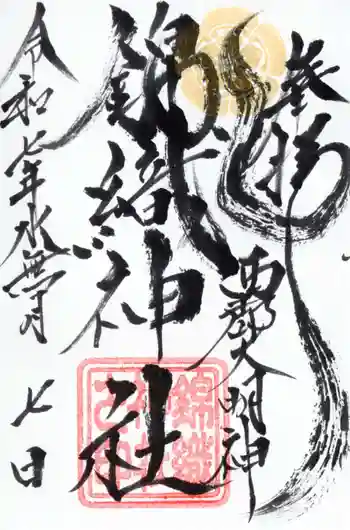 奉拝
西都大明神
錦織神社
令和七年水無月
七日